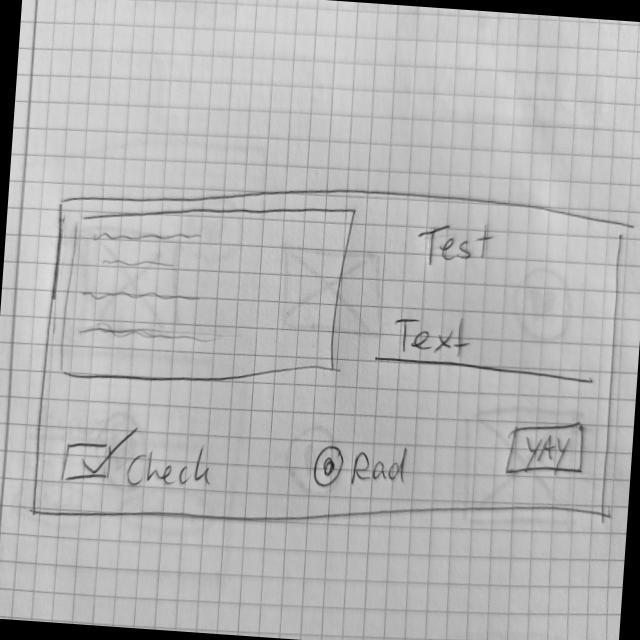 Test
Text
Check
Rad
YAY